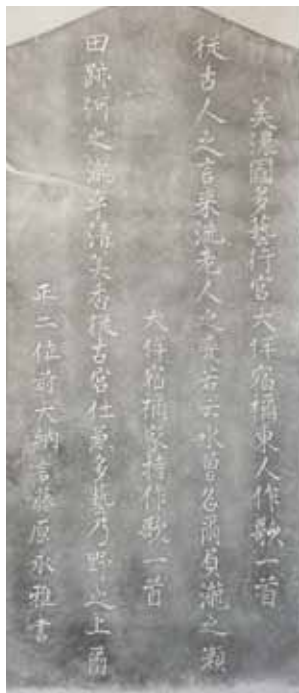 美濃國多藝行宮大伴宿禰東人作歌一首
従古人之言来流老人之変若云水曽名爾負瀧之瀬
大伴宿禰家持作歌一首
田跡河之瀧乎清美香従古宮仕兼多藝乃野之上爾
正二位前大納言藤原永雅書